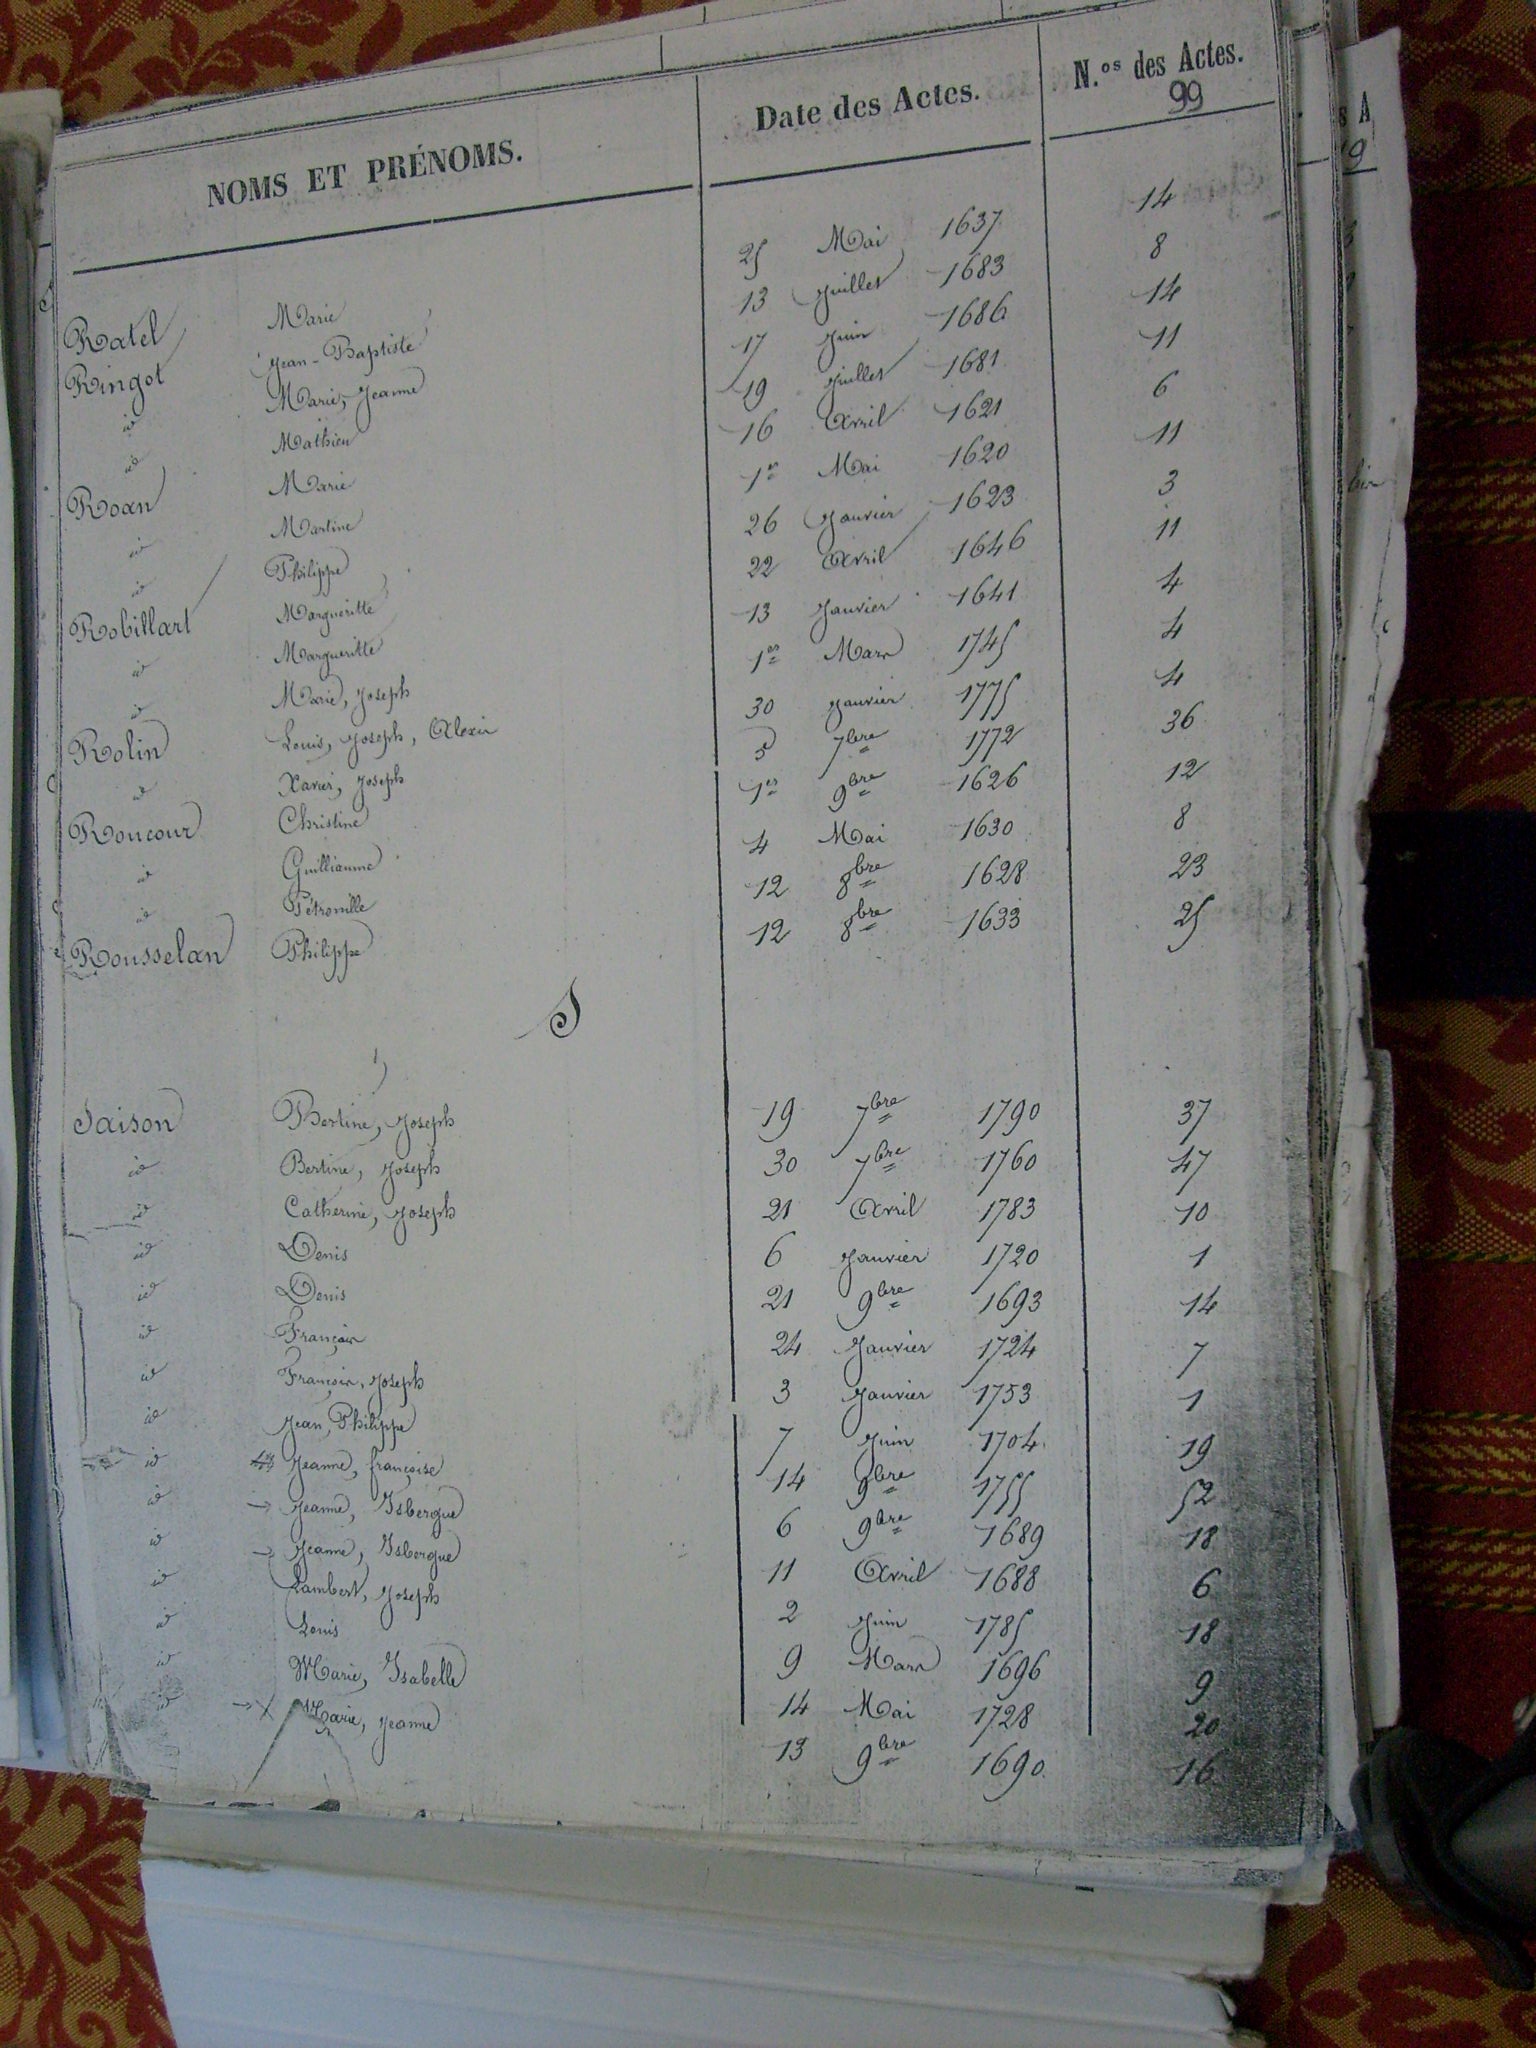 NOMS ET PRÉNOMS. Date des Actes. N.os des Actes.
99
Ratel Marie 25 Mai 1637 14
Ringot Jean-Baptiste 13 Juillet 1683 8
id Marie, Jeanne 17 Juin 1686 14
id Mathieu 19 Juillet 1681 11
Roan Marie 16 Avril 1621 6
id Martine 1er Mai 1620 11
id Philippe 26 Janvier 1623 3
Robillart Margueritte 22 Avril 1646 11
id Margueritte 13 Janvier 1641 4
id Marie, Joseph 1er Mars 1745 4
Rolin Louis, Joseph, Alexis 30 Janvier 1775 4
id Xavier, Joseph 5 7bre 1772 36
Roucour Christine 1er 9bre 1626 12
id Guilliaume 4 Mai 1630 8
id Pétronille 12 8bre 1628 23
Rousselan Philippe 12 8bre 1633 25
S
Saison Bertine, Joseph 19 7bre 1790 37
id Bertine, Joseph 30 7bre 1760 47
id Catherine, Joseph 21 Avril 1783 10
id Denis 6 Janvier 1720 1
id Denis 21 9bre 1693 14
id François 24 Janvier 1724 7
id François, Joseph 3 Janvier 1753 1
id Jean, Philippe 7 Juin 1704 19
id Jeanne, françoise 14 9bre 1755 52
id → Jeanne, Isbergue 6 9bre 1689 18
id → Jeanne, Isbergue 11 Avril 1688 6
id Lambert, Joseph 2 Juin 1785 18
id Louis 9 Mars 1696 9
id Marie, Isabelle 14 Mai 1728 20
id → X Marie, Jeanne 13 9bre 1690 16